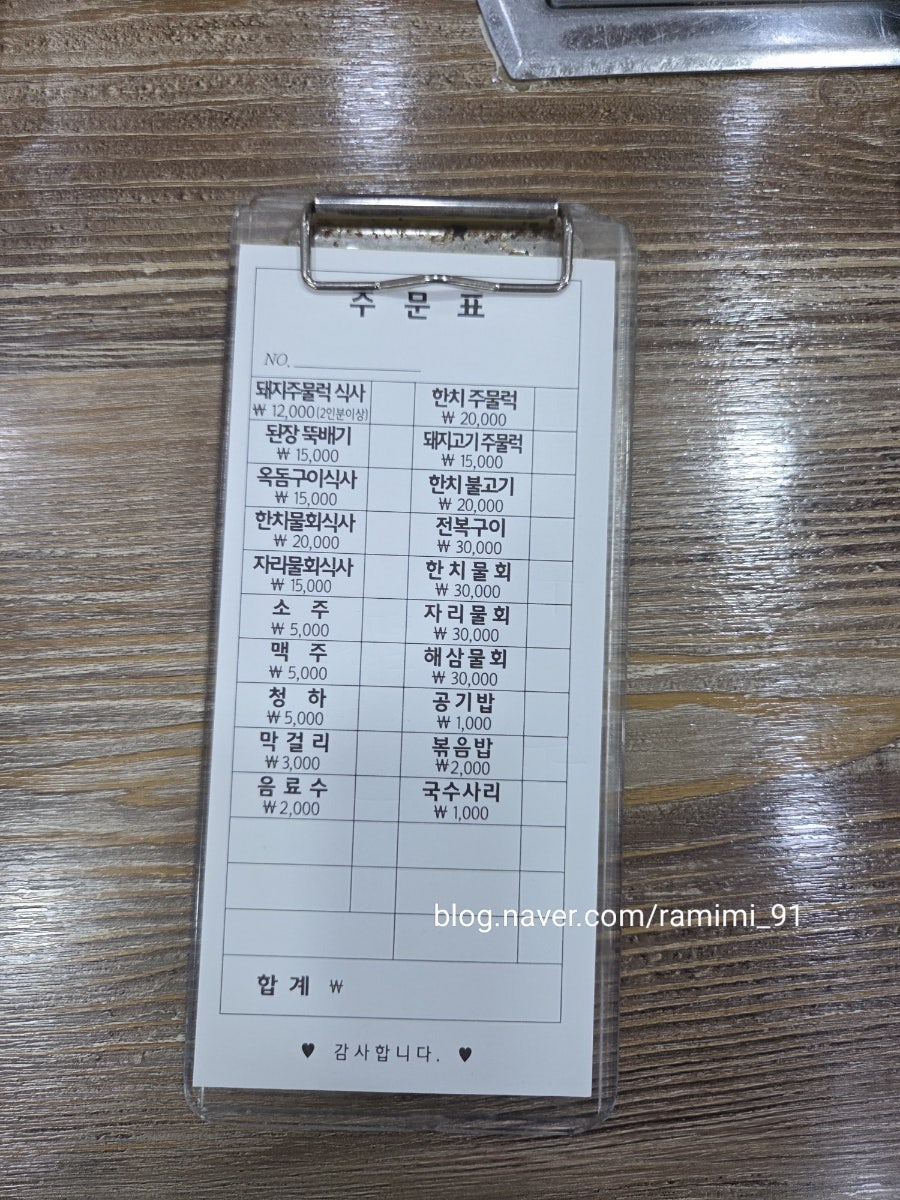 주 문 표
NO.
돼지주물럭 식사
₩ 12,000(2인분이상)
한치 주물럭
₩ 20,000
된장 뚝배기
₩ 15,000
돼지고기 주물럭
₩ 15,000
옥돔구이식사
₩ 15,000
한치 불고기
₩ 20,000
한치물회식사
₩ 20,000
전복구이
₩ 30,000
자리물회식사
₩ 15,000
한 치 물 회
₩ 30,000
소 주
₩ 5,000
자 리 물 회
₩ 30,000
맥 주
₩ 5,000
해 삼 물 회
₩ 30,000
청 하
₩ 5,000
공 기 밥
₩ 1,000
막 걸 리
₩ 3,000
볶음밥
₩2,000
음 료 수
₩ 2,000
국수사리
₩ 1,000
blog.naver.com/ramimi_91
합 계 ₩
♥ 감사합니다. ♥